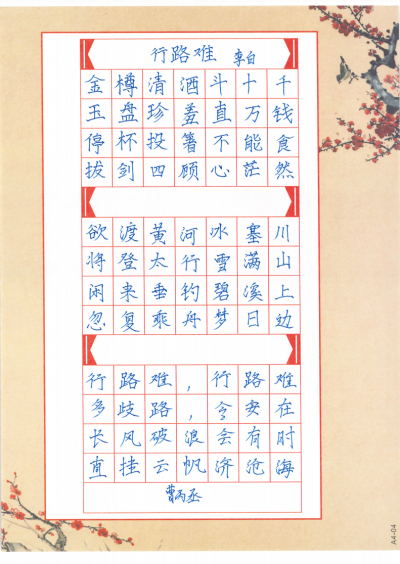 行路难 李白
金樽清酒斗十千
玉盘珍羞直万钱
停杯投箸不能食
拔剑四顾心茫然
欲渡黄河冰塞川
将登太行雪满山
闲来垂钓碧溪上
忽复乘舟梦日边
行路难，行路难
多歧路，今安在
长风破浪会有时
直挂云帆济沧海
A4-04